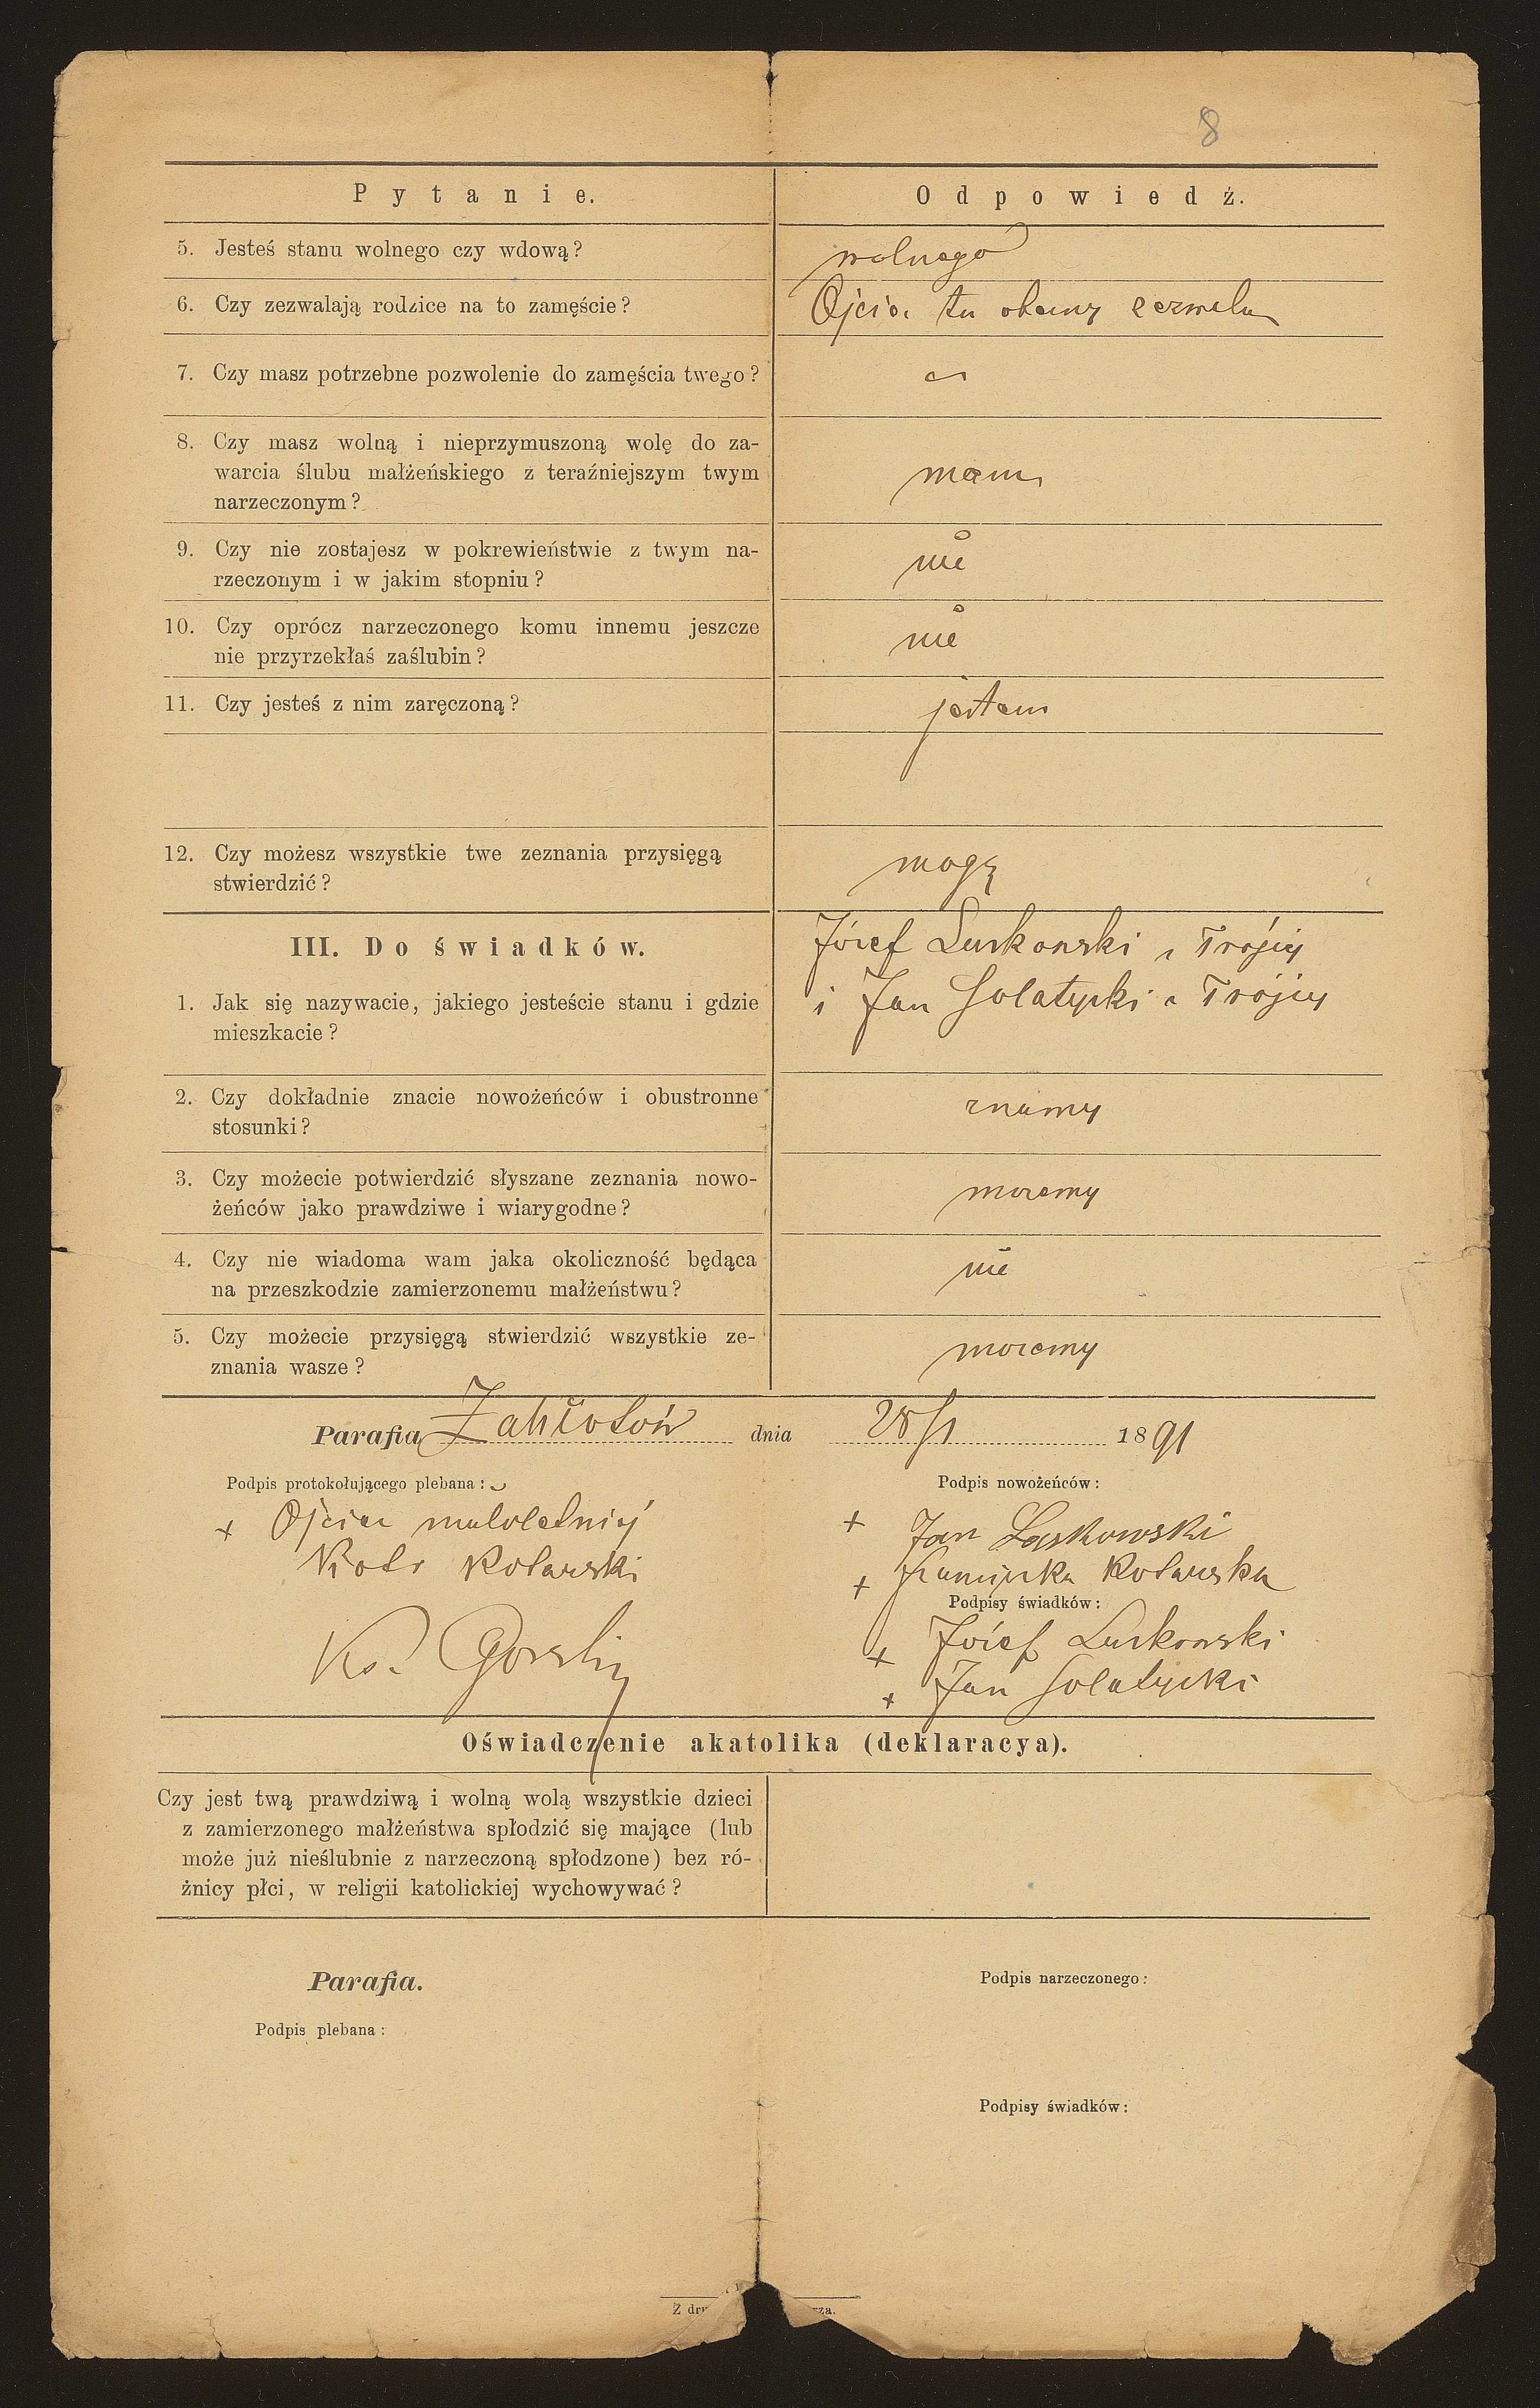 8
Pytanie. Odpowiedź.
5. Jesteś stanu wolnego czy wdową? wolnego
6. Czy zezwalają rodzice na to zamęście? Ojciec tu obecny zezwala
7. Czy masz potrzebne pozwolenie do zamęścia twego?
8. Czy masz wolną i nieprzymuszoną wolę do za-
warcia ślubu małżeńskiego z teraźniejszym twym
narzeczonym? mam
9. Czy nie zostajesz w pokrewieństwie z twym na-
rzeczonym i w jakim stopniu? nie
10. Czy oprócz narzeczonego komu innemu jeszcze
nie przyrzekłaś zaślubin? nie
11. Czy jesteś z nim zaręczoną? jestem
12. Czy możesz wszystkie twe zeznania przysięgą
stwierdzić? mogę
III. Do świadków.
Józef Laskowski z Trójcy
1. Jak się nazywacie, jakiego jesteście stanu i gdzie
mieszkacie?
i Jan Solatycki z Trójcy
2. Czy dokładnie znacie nowożeńców i obustronne
stosunki? znamy
3. Czy możecie potwierdzić słyszane zeznania nowo-
żeńców jako prawdziwe i wiarygodne? możemy
4. Czy nie wiadoma wam jaka okoliczność będąca
na przeszkodzie zamierzonemu małżeństwu? nie
5. Czy możecie przysięgą stwierdzić wszystkie ze-
znania wasze? możemy
Parafia Zabłotów dnia 28/1 1891
Podpis protokołującego plebana: Podpis nowożeńców:
+ Ojciec małoletniej + Jan Laskowski
Kotarski + Kotarska
Podpisy świadków:
Ks. + Józef Laskowski
+ Jan Solatycki
Oświadczenie akatolika (deklaracya).
Czy jest twą prawdziwą i wolną wolą wszystkie dzieci
z zamierzonego małżeństwa spłodzić się mające (lub
może już nieślubnie z narzeczoną spłodzone) bez ró-
żnicy płci, w religii katolickiej wychowywać?
Parafia. Podpis narzeczonego:
Podpis plebana:
Podpisy świadków:
Z dru
rza.